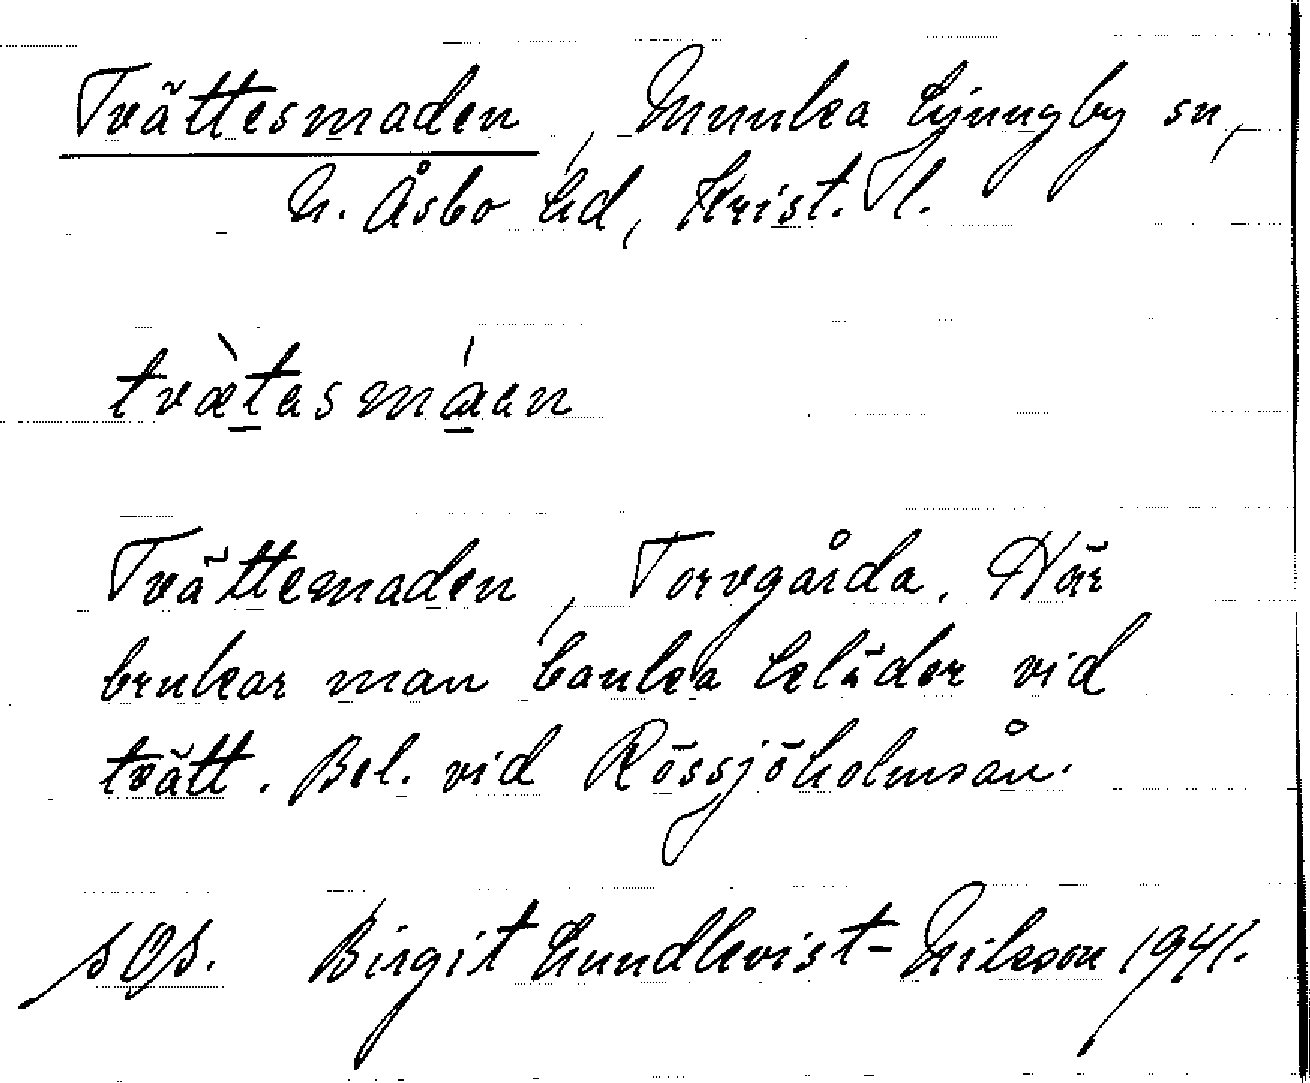 Tvättesmaden, Munka Ljungby sn,
N. Åsbo hd, Krist. l.
tvæ̀tasmáan
Tvättemaden, Torvgårda. Här
brukar man banka kläder vid
tvätt. Bel. vid Rössjöholmsån.
Birgit Lundkvist-Nilsson 1941.